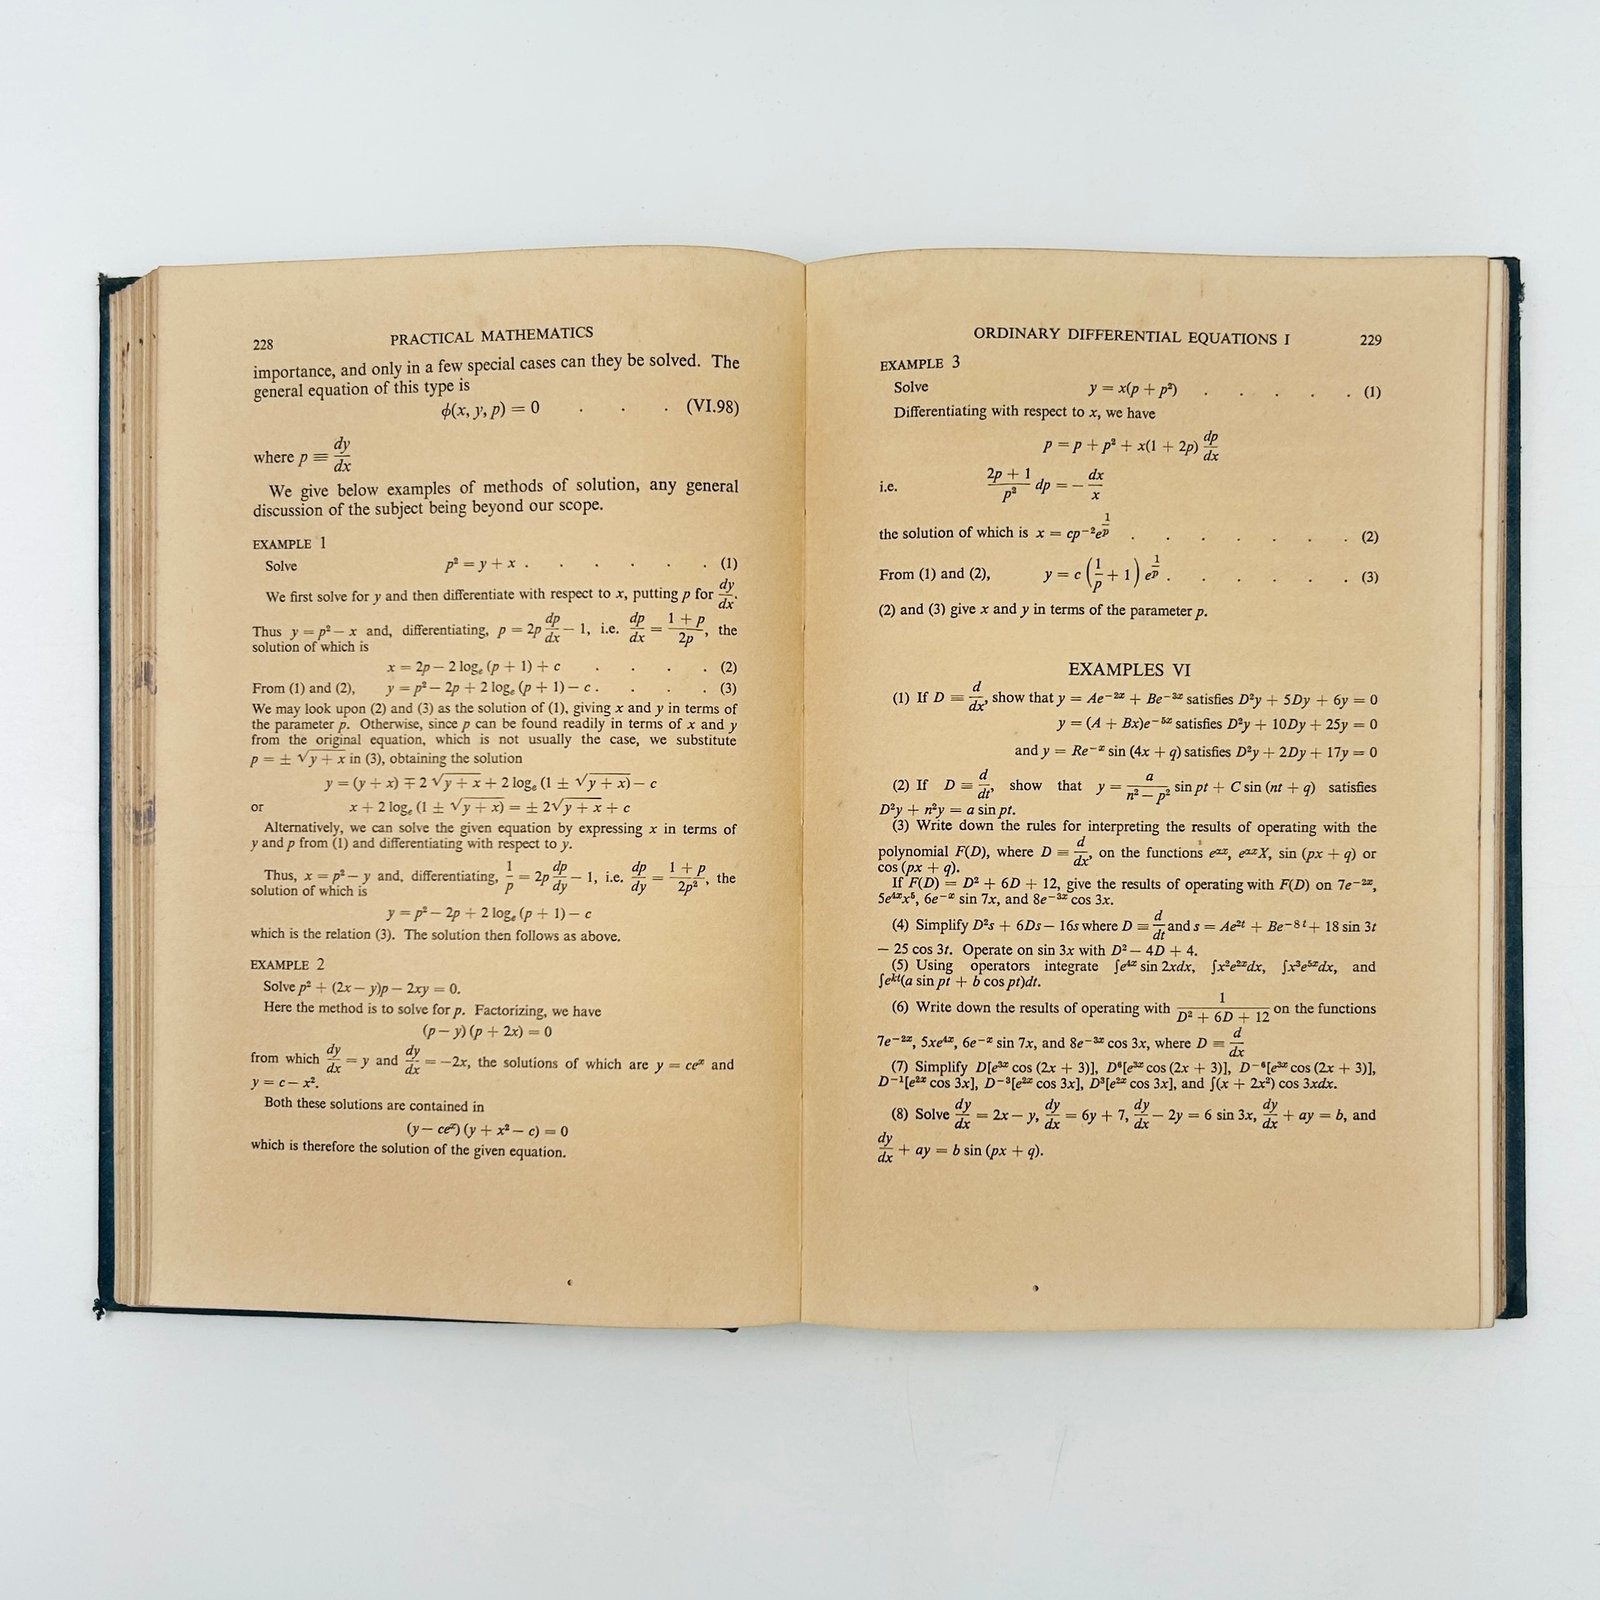 228 PRACTICAL MATHEMATICS
importance, and only in a few special cases can they be solved. The
general equation of this type is
ϕ(x, y, p) = 0 . . . (VI.98)
where p ≡ dy/dx
We give below examples of methods of solution, any general
discussion of the subject being beyond our scope.
EXAMPLE 1
Solve p² = y + x . . . . . . (1)
We first solve for y and then differentiate with respect to x, putting p for dy/dx.
Thus y = p² − x and, differentiating, p = 2p dp/dx − 1, i.e. dp/dx = (1 + p)/2p, the
solution of which is
x = 2p − 2 logₑ (p + 1) + c . . . . (2)
From (1) and (2), y = p² − 2p + 2 logₑ (p + 1) − c . . . . (3)
We may look upon (2) and (3) as the solution of (1), giving x and y in terms of
the parameter p. Otherwise, since p can be found readily in terms of x and y
from the original equation, which is not usually the case, we substitute
p = ± √(y + x) in (3), obtaining the solution
y = (y + x) ∓ 2 √(y + x) + 2 logₑ (1 ± √(y + x)) − c
or x + 2 logₑ (1 ± √(y + x)) = ± 2√(y + x) + c
Alternatively, we can solve the given equation by expressing x in terms of
y and p from (1) and differentiating with respect to y.
Thus, x = p² − y and, differentiating, 1/p = 2p dp/dy − 1, i.e. dp/dy = (1 + p)/2p², the
solution of which is
y = p² − 2p + 2 logₑ (p + 1) − c
which is the relation (3). The solution then follows as above.
EXAMPLE 2
Solve p² + (2x − y)p − 2xy = 0.
Here the method is to solve for p. Factorizing, we have
(p − y) (p + 2x) = 0
from which dy/dx = y and dy/dx = −2x, the solutions of which are y = ceˣ and
y = c − x².
Both these solutions are contained in
(y − ceˣ) (y + x² − c) = 0
which is therefore the solution of the given equation.
ORDINARY DIFFERENTIAL EQUATIONS I 229
EXAMPLE 3
Solve y = x(p + p²) . . . . . (1)
Differentiating with respect to x, we have
p = p + p² + x(1 + 2p) dp/dx
i.e. (2p + 1)/p² dp = − dx/x
the solution of which is x = cp⁻²e^(1/p) . . . . . . . (2)
From (1) and (2), y = c (1/p + 1) e^(1/p) . . . . . . (3)
(2) and (3) give x and y in terms of the parameter p.
EXAMPLES VI
(1) If D ≡ d/dx, show that y = Ae⁻²ˣ + Be⁻³ˣ satisfies D²y + 5Dy + 6y = 0
y = (A + Bx)e⁻⁵ˣ satisfies D²y + 10Dy + 25y = 0
and y = Re⁻ˣ sin (4x + q) satisfies D²y + 2Dy + 17y = 0
(2) If D ≡ d/dt, show that y = a/(n² − p²) sin pt + C sin (nt + q) satisfies
D²y + n²y = a sin pt.
(3) Write down the rules for interpreting the results of operating with the
polynomial F(D), where D ≡ d/dx, on the functions e^(αx), e^(αx)X, sin (px + q) or
cos (px + q).
If F(D) = D² + 6D + 12, give the results of operating with F(D) on 7e⁻²ˣ,
5e⁴ˣx⁵, 6e⁻ˣ sin 7x, and 8e⁻³ˣ cos 3x.
(4) Simplify D²s + 6Ds − 16s where D ≡ d/dt and s = Ae²ᵗ + Be⁻⁸ᵗ + 18 sin 3t
− 25 cos 3t. Operate on sin 3x with D² − 4D + 4.
(5) Using operators integrate ∫e⁴ˣ sin 2xdx, ∫x²e²ˣdx, ∫x³e⁵ˣdx, and
∫eᵏᵗ(a sin pt + b cos pt)dt.
(6) Write down the results of operating with 1/(D² + 6D + 12) on the functions
7e⁻²ˣ, 5xe⁴ˣ, 6e⁻ˣ sin 7x, and 8e⁻³ˣ cos 3x, where D ≡ d/dx
(7) Simplify D[e³ˣ cos (2x + 3)], D⁶[e³ˣ cos (2x + 3)], D⁻⁶[e³ˣ cos (2x + 3)],
D⁻¹[e²ˣ cos 3x], D⁻³[e²ˣ cos 3x], D³[e²ˣ cos 3x], and ∫(x + 2x²) cos 3xdx.
(8) Solve dy/dx = 2x − y, dy/dx = 6y + 7, dy/dx − 2y = 6 sin 3x, dy/dx + ay = b, and
dy/dx + ay = b sin (px + q).